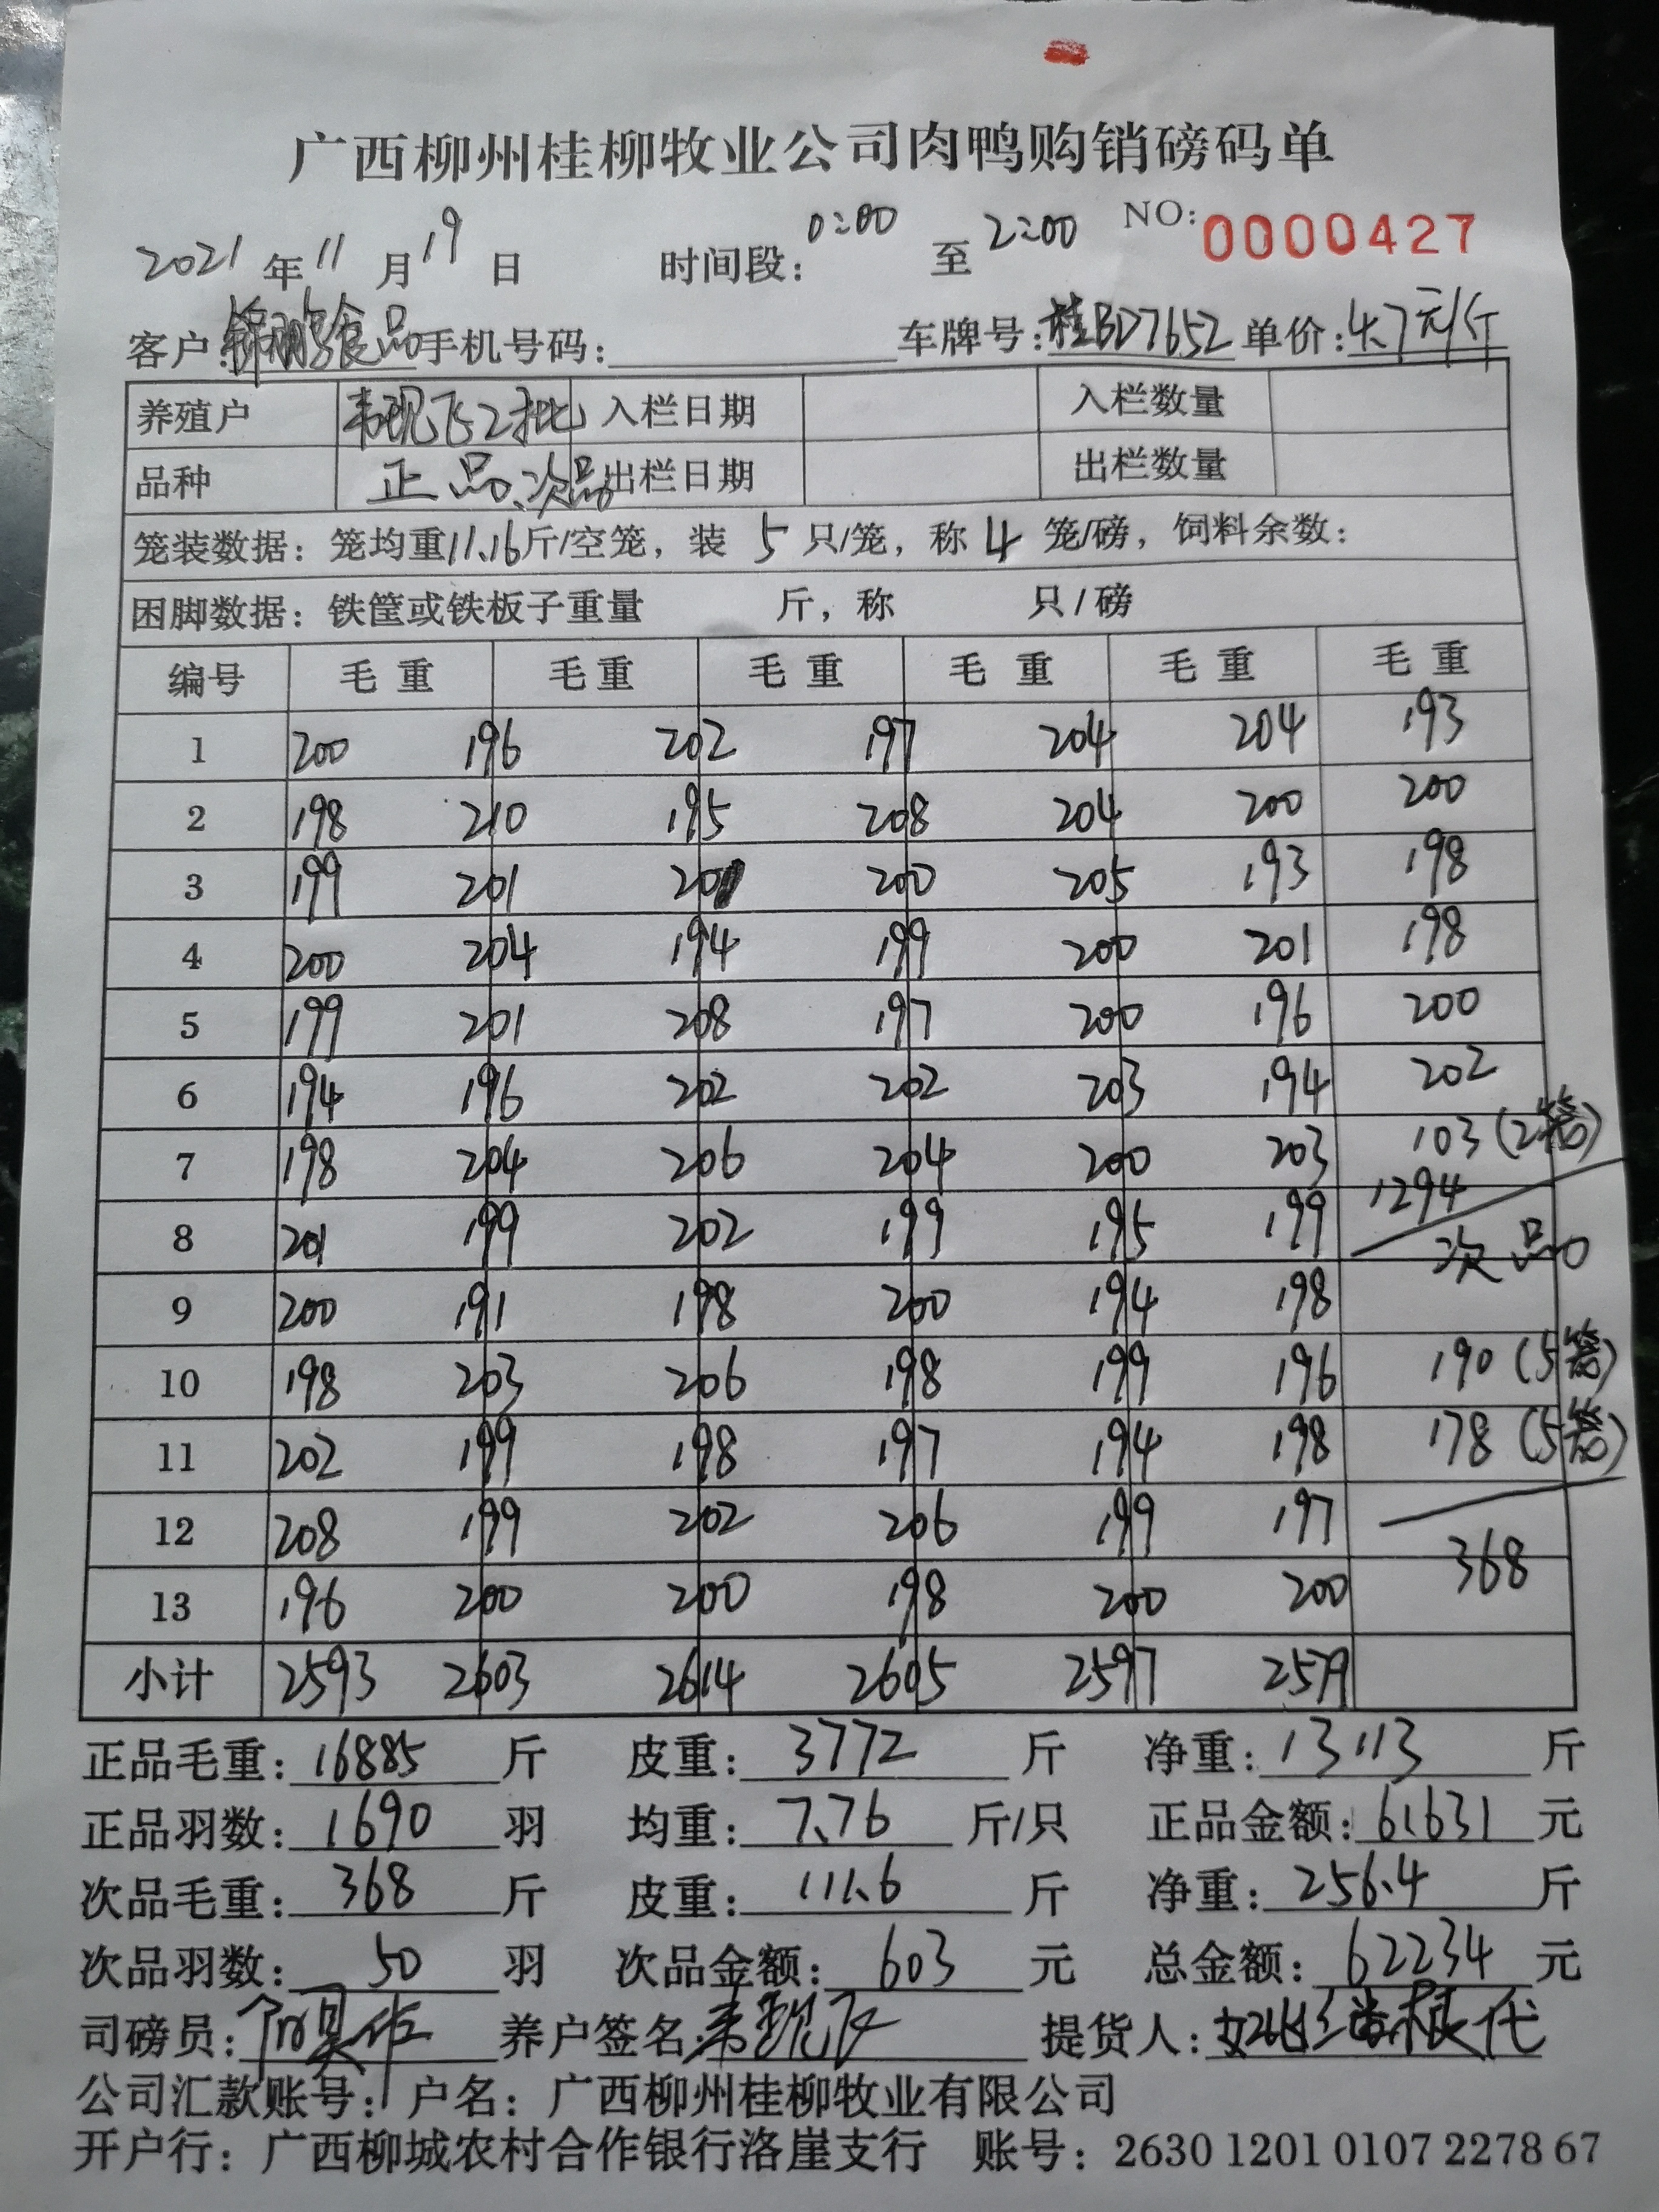 广西柳州桂柳牧业公司肉鸭购销磅码单
2021年11月19日 时间段:0:00至2:00 NO:0000427
客户:锦鹏食品 手机号码: 车牌号:桂BD7652 单价:4.7元/斤
养殖户 韦现飞2批 入栏日期 入栏数量
品种 正品、次品 出栏日期 出栏数量
笼装数据:笼均重11.16斤/空笼,装5只/笼,称4笼/磅,饲料余数:
困脚数据:铁筐或铁板子重量 斤,称 只/磅
编号 毛重 毛重 毛重 毛重 毛重 毛重
1 200 196 202 197 204 204 193
2 198 210 195 208 204 200 200
3 199 201 201 200 205 193 198
4 200 204 194 199 200 201 198
5 199 201 208 197 200 196 200
6 194 196 202 202 203 194 202
7 198 204 206 204 200 203 103(2笼)
1294
8 201 199 202 199 195 199 次品
9 200 191 198 200 194 198
10 198 203 206 198 199 196 190(5笼)
11 202 199 198 197 194 198 178(5笼)
12 208 199 202 206 199 197
368
13 196 200 200 198 200 200
小计 2593 2603 2614 2605 2597 2579
正品毛重:16885斤 皮重:3772斤 净重:13113斤
正品羽数:1690羽 均重:7.76斤/只 正品金额:61631元
次品毛重:368斤 皮重:111.6斤 净重:256.4斤
次品羽数:50羽 次品金额:603元 总金额:62234元
司磅员: 养户签名:韦现飞 提货人: 代
公司汇款账号:户名:广西柳州桂柳牧业有限公司
开户行:广西柳城农村合作银行洛崖支行 账号:2630 1201 0107 2278 67